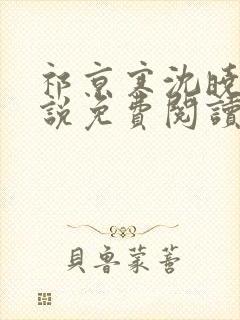 祁京寒沈晚
說免費閱讀
貝魯蒙菩